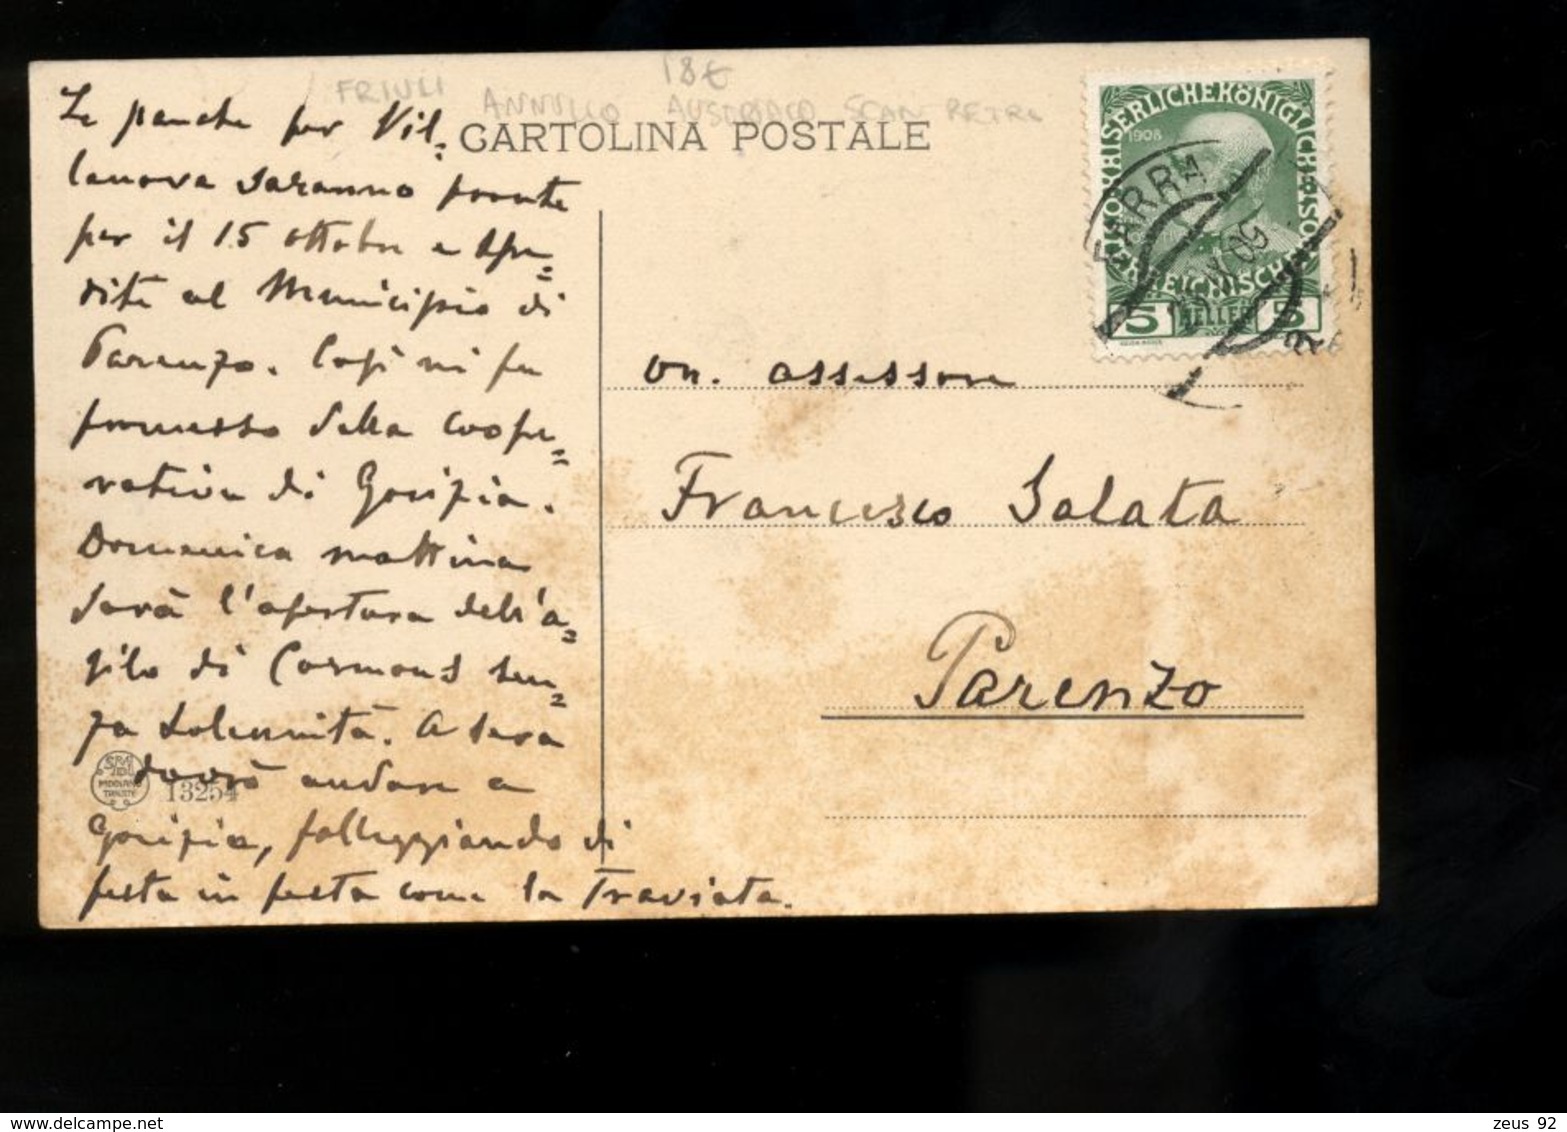 FRIULI
18€
ANNULLO AUSTRIACO SCAN RETRO
CARTOLINA POSTALE
Le panche per Vil=
lanova saranno pronte
per il 15 ottobre e spe=
dite al Municipio di
Parenzo. Così mi fu
promesso dalla coope=
rativa di Gorizia.
Domenica mattina
sarà l'apertura dell'a=
silo di Cormons sen=
za solennità. A sera
dovrò andare a
Gorizia, folleggiando di
festa in festa come la Traviata.
13254
ÖSTERREICHISCHE
KAISERLICHEKÖNIGLICHE
1908
5 HELLER 5
FARRA
on. assessore
Francesco Salata
Parenzo
zeus 92